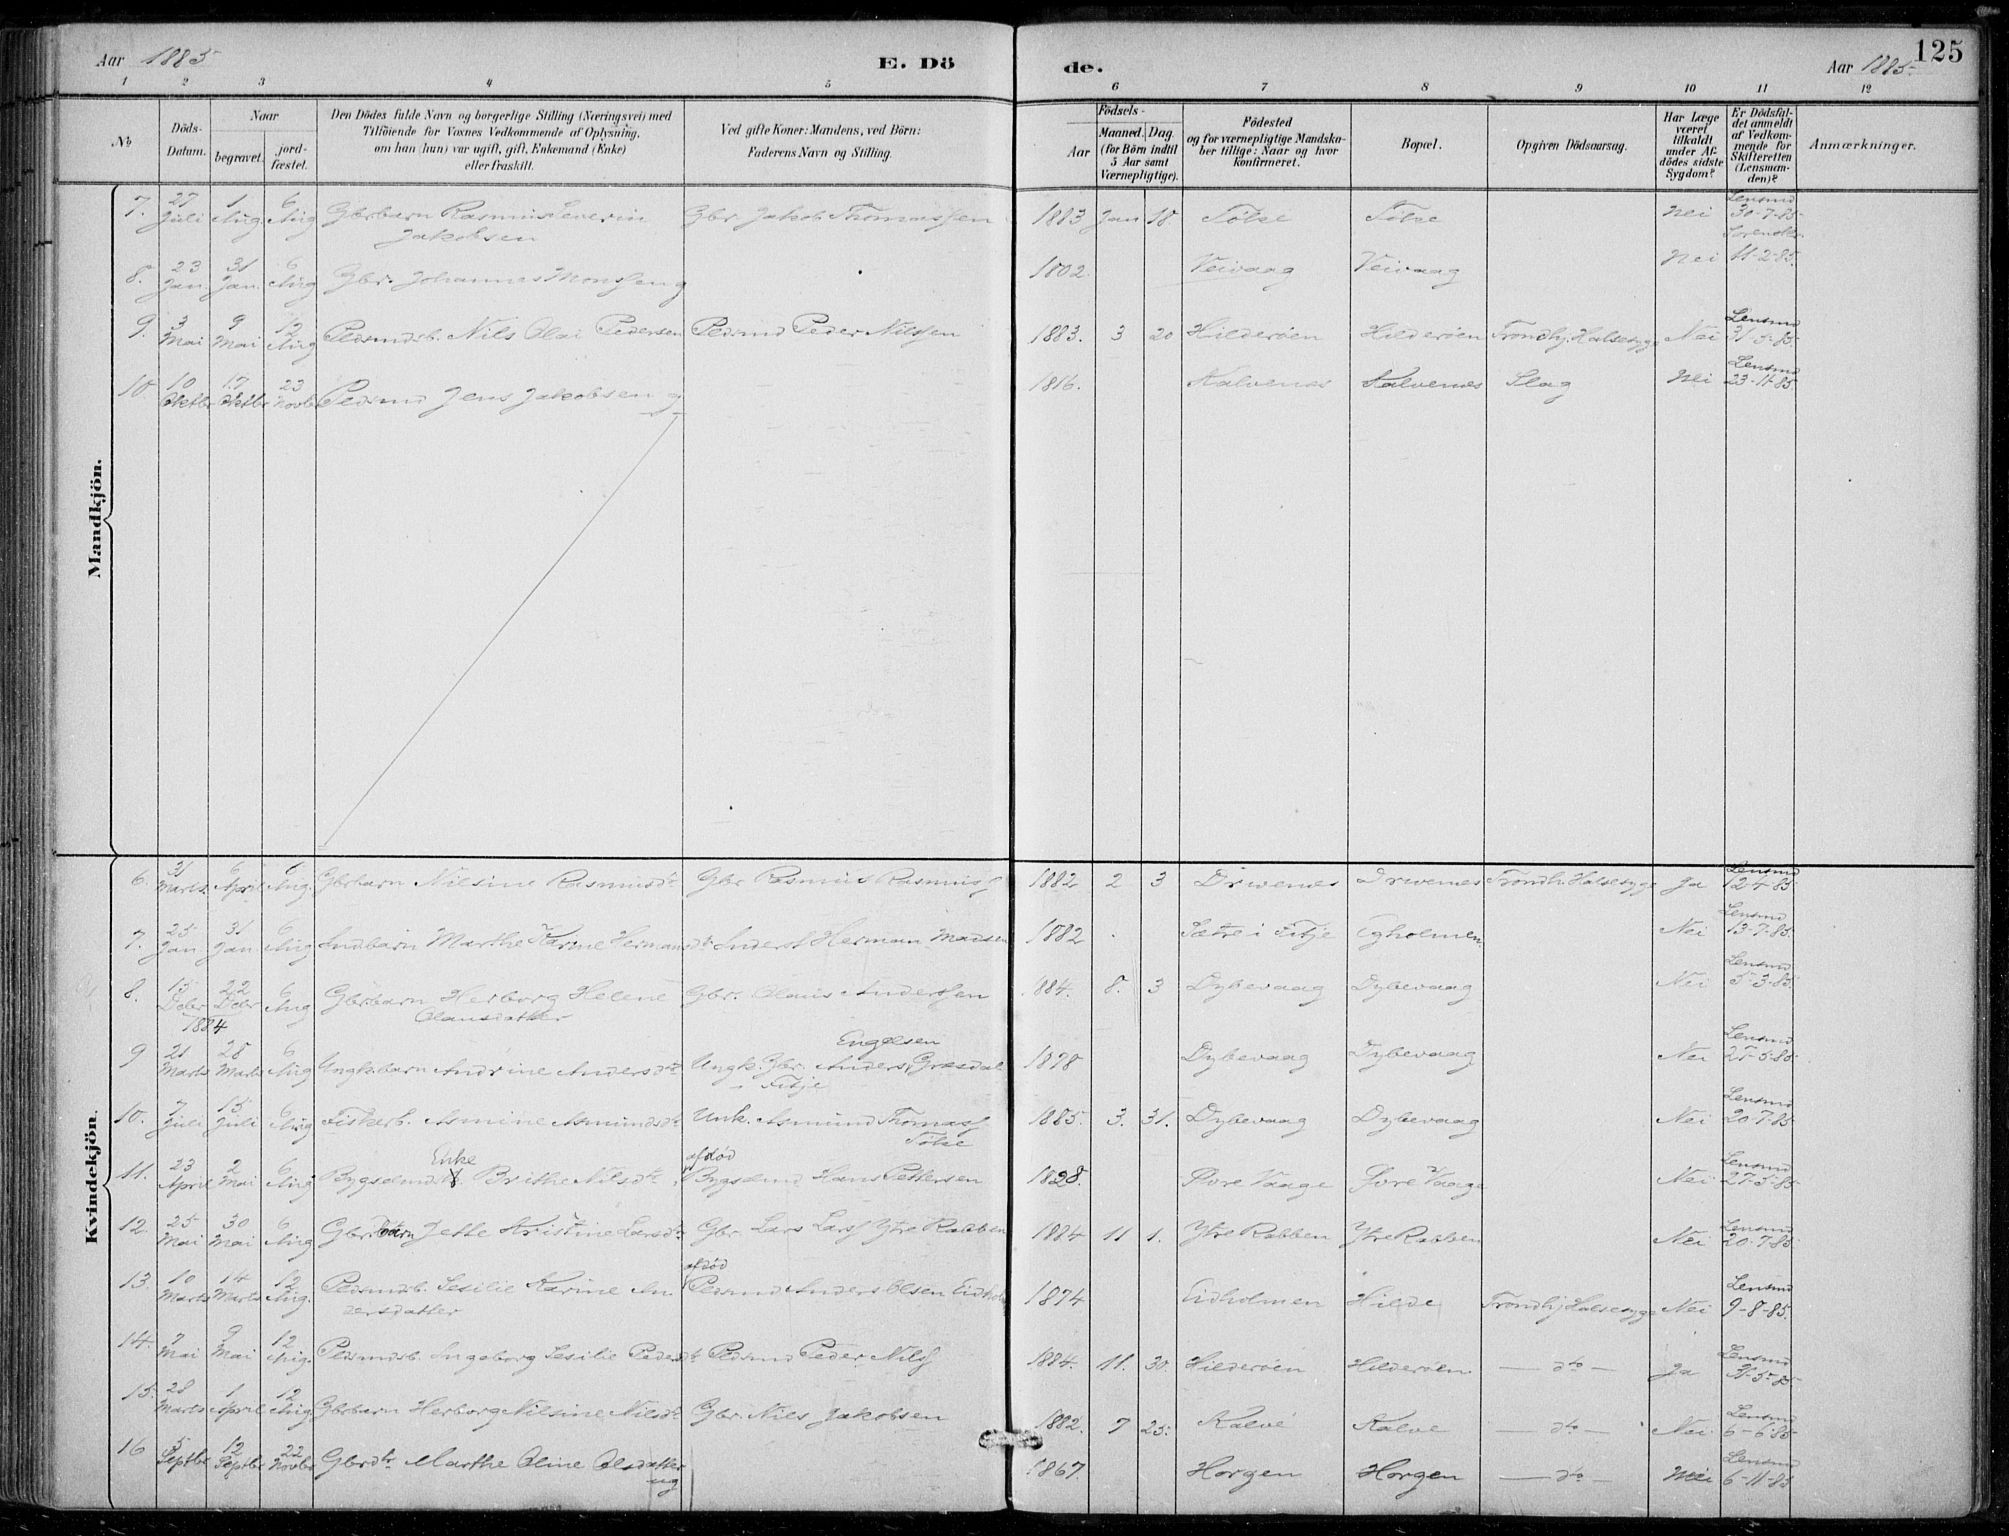 Aar 1885 E. Dö
de. Aar 1885. 125
1 2 3 4 5 6 7 8 9 10 11 12
No
Döds-Datum.
Naar
begravet.
jord-fæstet.
Den Dödes fulde Navn og borgerlige Stilling (Næringsvei) med
Tilföiende for Voxnes Vedkommende af Oplysning,
om han (hun) var ugift, gift, Enkemand (Enke)
eller fraskilt.
Ved gifte Koner: Mandens, ved Börn:
Faderens Navn og Stilling.
Födsels-
Aar
Maaned. Dag.
(for Börn indtil
5 Aar samt
Værnepligtige).
Födested
og for værnepligtige Mandska-
ber tillige: Naar og hvor
konfirmeret.
Bopæl.
Opgiven Dödsaarsag.
Har Læge
været
tilkaldt
under Af-
dödes sidste
Sygdom?
Er Dödsfal-
det anmeldt
af Vedkom-
mende for
Skifteretten
(Lensman-
den)?
Anmærkninger.
Mandkjön.
7. 27 Juli 1 Aug 6 Aug Gbrbarn Rasmus Severin Jakobsen Gbr. Jakob Thomassen 1883 Jan 18 Tölse Tölse Nei Lensmd 30-7-85
8. 23 Jan. 31 Jan. 6 Aug Gbr. Johannes Monsen g 1802. Veivaag Veivaag Nei Sorenskr. 11-2-85.
9. 3 Mai 9 Mai 12 Aug Pedsmdsb. Nils Olai Pedersen Pedsmd Peder Nilssen 1883. 3 20 Hilderöen Hilderöen Trondhj. Halsesyge Nei Lensmd 31-5-85.
10 10 Oktbr 17 Oktbr 23 Novbr Pedsmd Jens Jakobsen g 1816. Kalvenes Kalvenes Slag Nei Lensmd 23-11-85
Kvindekjön.
6. 31 Marts 6 April 6 Aug. Gbrbarn Nilsine Rasmusdtr Gbr Rasmus Rasmuss 1882 2 3 Drivenes Drivenes Trondhj. Halsesyge Ja Lensmd 12-4-85.
7. 25 Jan 31 Jan 6 Aug Indbarn Marthe Karine Hermansdtr Inderst Herman Madsen 1882 Sætre i Fitje Egholmen Nei Lensmd 13-7-85.
8. 15 Dcbr 22 Dcbr 1884 6 Aug Gbrbarn Herborg Helene Olausdatter Gbr. Olaus Anderssen 1884. 8. 3 Dybevaag Dybevaag Nei Lensmd 5-3-85.
9 21 Marts 28 Marts 6 Aug Ungk.barn Andrine Andersdtr Ungk. Gbr. Anders Engelsen Græsdal Fitje 1878 Dybevaag Dybevaag Nei Lensmd 25-5-85
10. 7 Juli 15 Juli 6 Aug Fiskerb. Asmine Asmundsdtr Unk. Asmund Thomass Tölse 1885. 3. 31. Dybevaag Dybevaag Nei Lensmd 20-7-85
11. 23 April 2 Mai 6 Aug Bygselmds Enke Brithe Nilsdtr afdöd Bygselmd Hans Pettersen 1828. Övre Vaage Övre Vaage Nei Lensmd 27-5-85
12. 25 Mai 30 Mai 6 Aug Gbr.barn Jette Kristine Larsdtr Gbr. Lars Larss Ytre Rabben 1884 11 1. Ytre Rabben Ytre Rabben Nei Lensmd 20-7-85
13. 10 Marts 14 Marts 12 Aug. Pedsmdsb. Sesilie Karine Andersdatter afdöd Pedsmd Anders Olsen Eidholm 1874 Eidholmen Hilde Trondhj. Halsesyge Nei Lensmd 9-8-85.
14. 7 Mai 9 Mai 12 Aug. Pedsmdsb. Ingeborg Sesilie Pedersdtr Pedsmd Peder Nilss 1884. 11. 30. Hilderöen Hilderöen — dto — Ja Lensmd 31-5-85
15. 28 Marts 1 April 12 Aug Gbrbarn Herborg Nilsine Nilsdtr Gbr. Nils Jakobsen 1882. 7 25. Kalve Kalve — dto — Nei Lensmd 6-6-85
16 5 Septbr 12 Septbr 22 Novbr Gbrdtr Marthe Oline Olsdatter ug 1867. Horgen Horgen — dto — Nei Lensmd 6-11-85